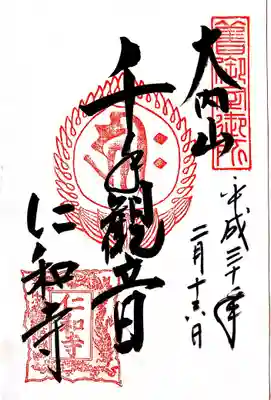 舊御室御所
大内山
平成三十年
二月十六日
千手觀音
仁和寺
仁和寺